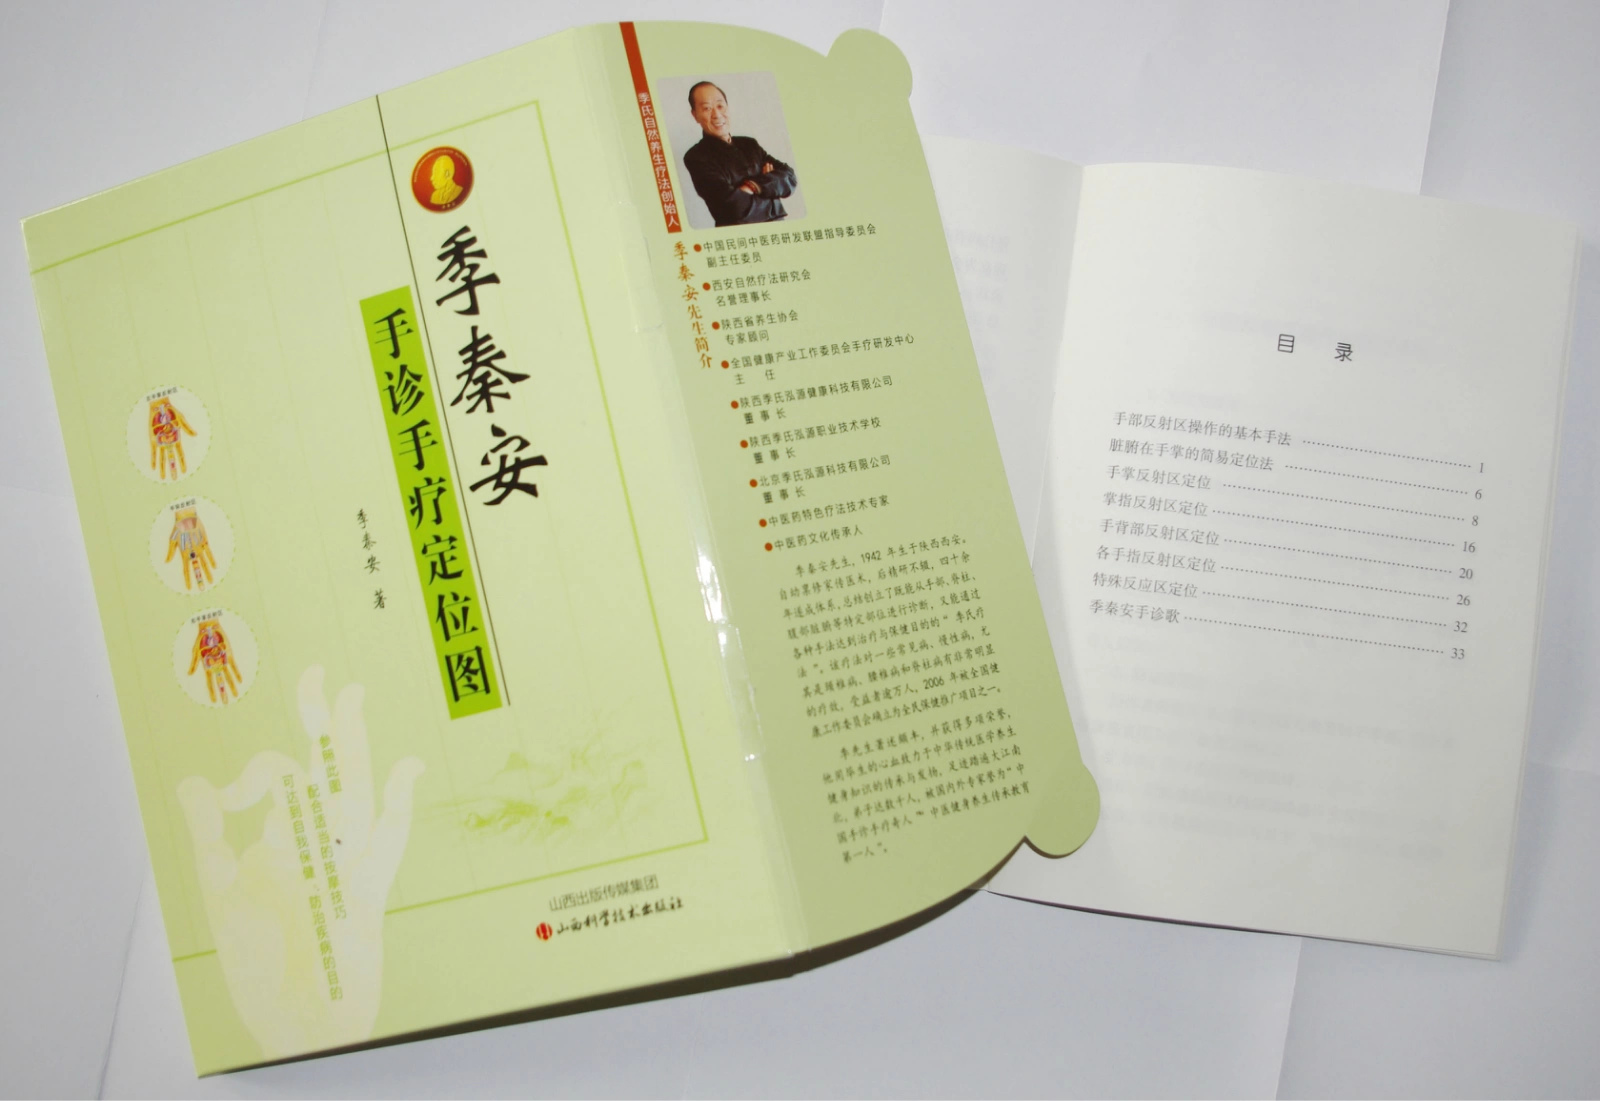 季秦安
手诊手疗定位图
季秦安 著
参照此图
配合适当的按摩技巧
可达到自我保健、防治疾病的目的
山西出版传媒集团
山西科学技术出版社
季氏自然养生疗法创始人
季秦安先生简介
中国民间中医药研发联盟指导委员会
副主任委员
西安自然疗法研究会
名誉理事长
陕西省养生协会
专家顾问
全国健康产业工作委员会手疗研发中心
主 任
陕西季氏泓源健康科技有限公司
董 事 长
陕西季氏泓源职业技术学校
董 事 长
北京季氏泓源科技有限公司
董 事 长
中医药特色疗法技术专家
中医药文化传承人
季秦安先生，1942 年生于陕西西安。
自幼累修家传医术，后精研不辍，四十余
年遂成体系，总结创立了既能从手部、脊柱、
腹部脏腑等特定部位进行诊断，又能通过
各种手法达到治疗与保健目的的“ 季氏疗
法 ”。该疗法对一些常见病、慢性病，尤
其是颈椎病、腰椎病和脊柱病有非常明显
的疗效，受益者逾万人，2006 年被全国健
康工作委员会确立为全民保健推广项目之一。
季先生著述颇丰，并获得多项荣誉，
他用毕生的心血致力于中华传统医学养生
健身知识的传承与发扬，足迹踏遍大江南
北，弟子达数千人，被国内外专家誉为“ 中
国手诊手疗奇人 ”“ 中医健身养生传承教育
第一人 ”。
目 录
手部反射区操作的基本手法 1
脏腑在手掌的简易定位法 6
手掌反射区定位 8
掌指反射区定位 16
手背部反射区定位 20
各手指反射区定位 26
特殊反应区定位 32
季秦安手诊歌 33